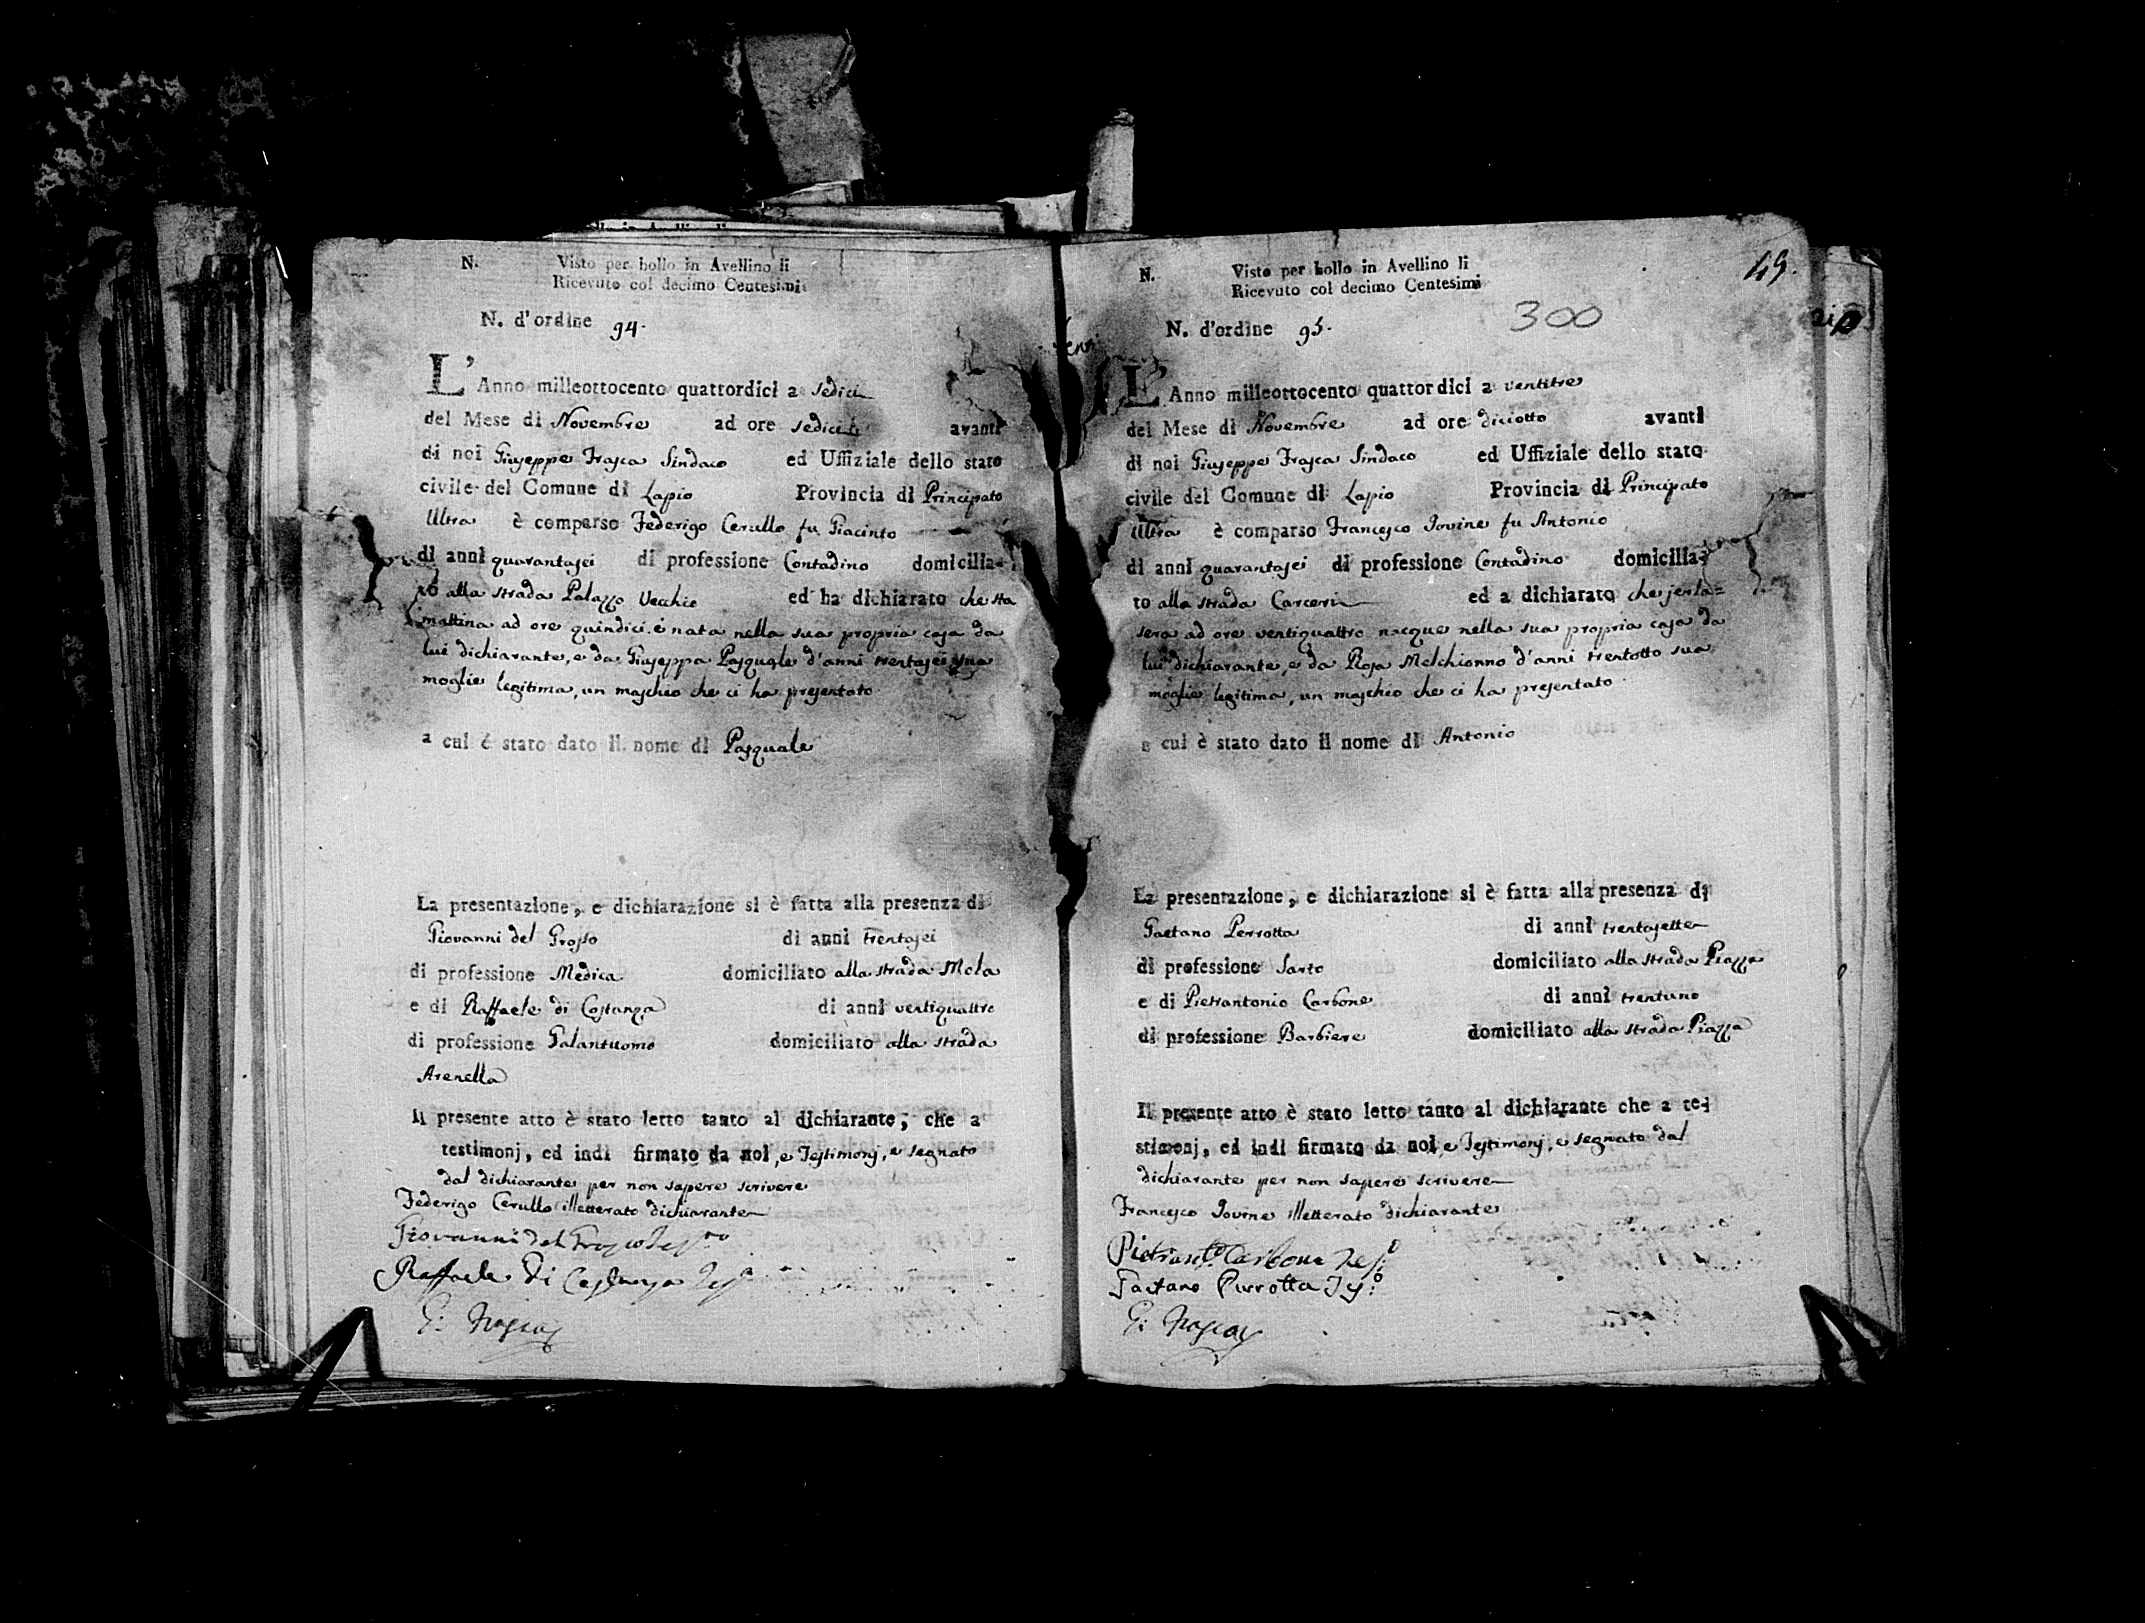 N. Visto per bollo in Avellino li
Ricevuto col decimo Centesimi
N. d'ordine 94.
L'Anno milleottocento quattordici a sedici
del Mese di Novembre ad ore sedici avanti
di noi Giuseppe Frasca Sindaco ed Uffiziale dello stato
civile del Comune di Lapio Provincia di Principato
Ultra è comparso Federigo Cerullo fu Giacinto
di anni quarantasei di professione Contadino domicilia-
to alla strada Palazzo Vecchio ed ha dichiarato che sta
mattina ad ore quindici è nata nella sua propria casa da
lui dichiarante, e da Giuseppa Pasquale d'anni trentasei sua
moglie legitima, un maschio che ci ha presentato
a cui è stato dato il nome di Pasquale
La presentazione, e dichiarazione si è fatta alla presenza di
Giovanni del Grosso di anni trentasei
di professione Medica domiciliato alla strada Mola
e di Raffaele di Costanza di anni ventiquattro
di professione Galantuomo domiciliato alla strada
Arenella
Il presente atto è stato letto tanto al dichiarante, che a
testimonj, ed indi firmato da noi, e Testimonj, e segnato
dal dichiarante per non sapere scrivere
Federigo Cerullo illetterato dichiarante
Giovanni del Grosso
Raffaele Di Costanza
G: Frasca
49.
300
N. Visto per bollo in Avellino li
Ricevuto col decimo Centesimi
N. d'ordine 95.
L'Anno milleottocento quattordici a ventitre
del Mese di Novembre ad ore diciotto avanti
di noi Giuseppe Frasca Sindaco ed Uffiziale dello stato
civile del Comune di Lapio Provincia di Principato
Ultra è comparso Francesco Iovine fu Antonio
di anni quarantasei di professione Contadino domicilia-
to alla strada Carceri ed a dichiarato che jerla=
sera ad ore ventiquattro nacque nella sua propria casa da
lui dichiarante, e da Rosa Melchionno d'anni trentotto sua
moglie legitima, un maschio che ci ha presentato
a cui è stato dato il nome di Antonio
La presentazione, e dichiarazione si è fatta alla presenza di
Gaetano Perrotta di anni trentasette
di professione Sarto domiciliato alla strada Piazza
e di Pietrantonio Carbone di anni trentuno
di professione Barbiere domiciliato alla strada Piazza
Il presente atto è stato letto tanto al dichiarante che a te-
stimonj, ed indi firmato da noi, e Testimonj, e segnato dal
dichiarante per non sapere scrivere
Francesco Iovine illetterato dichiarante
Pietrant.º Carbone Tes:º
Gaetano Purrotta Tes:º
G: Frasca